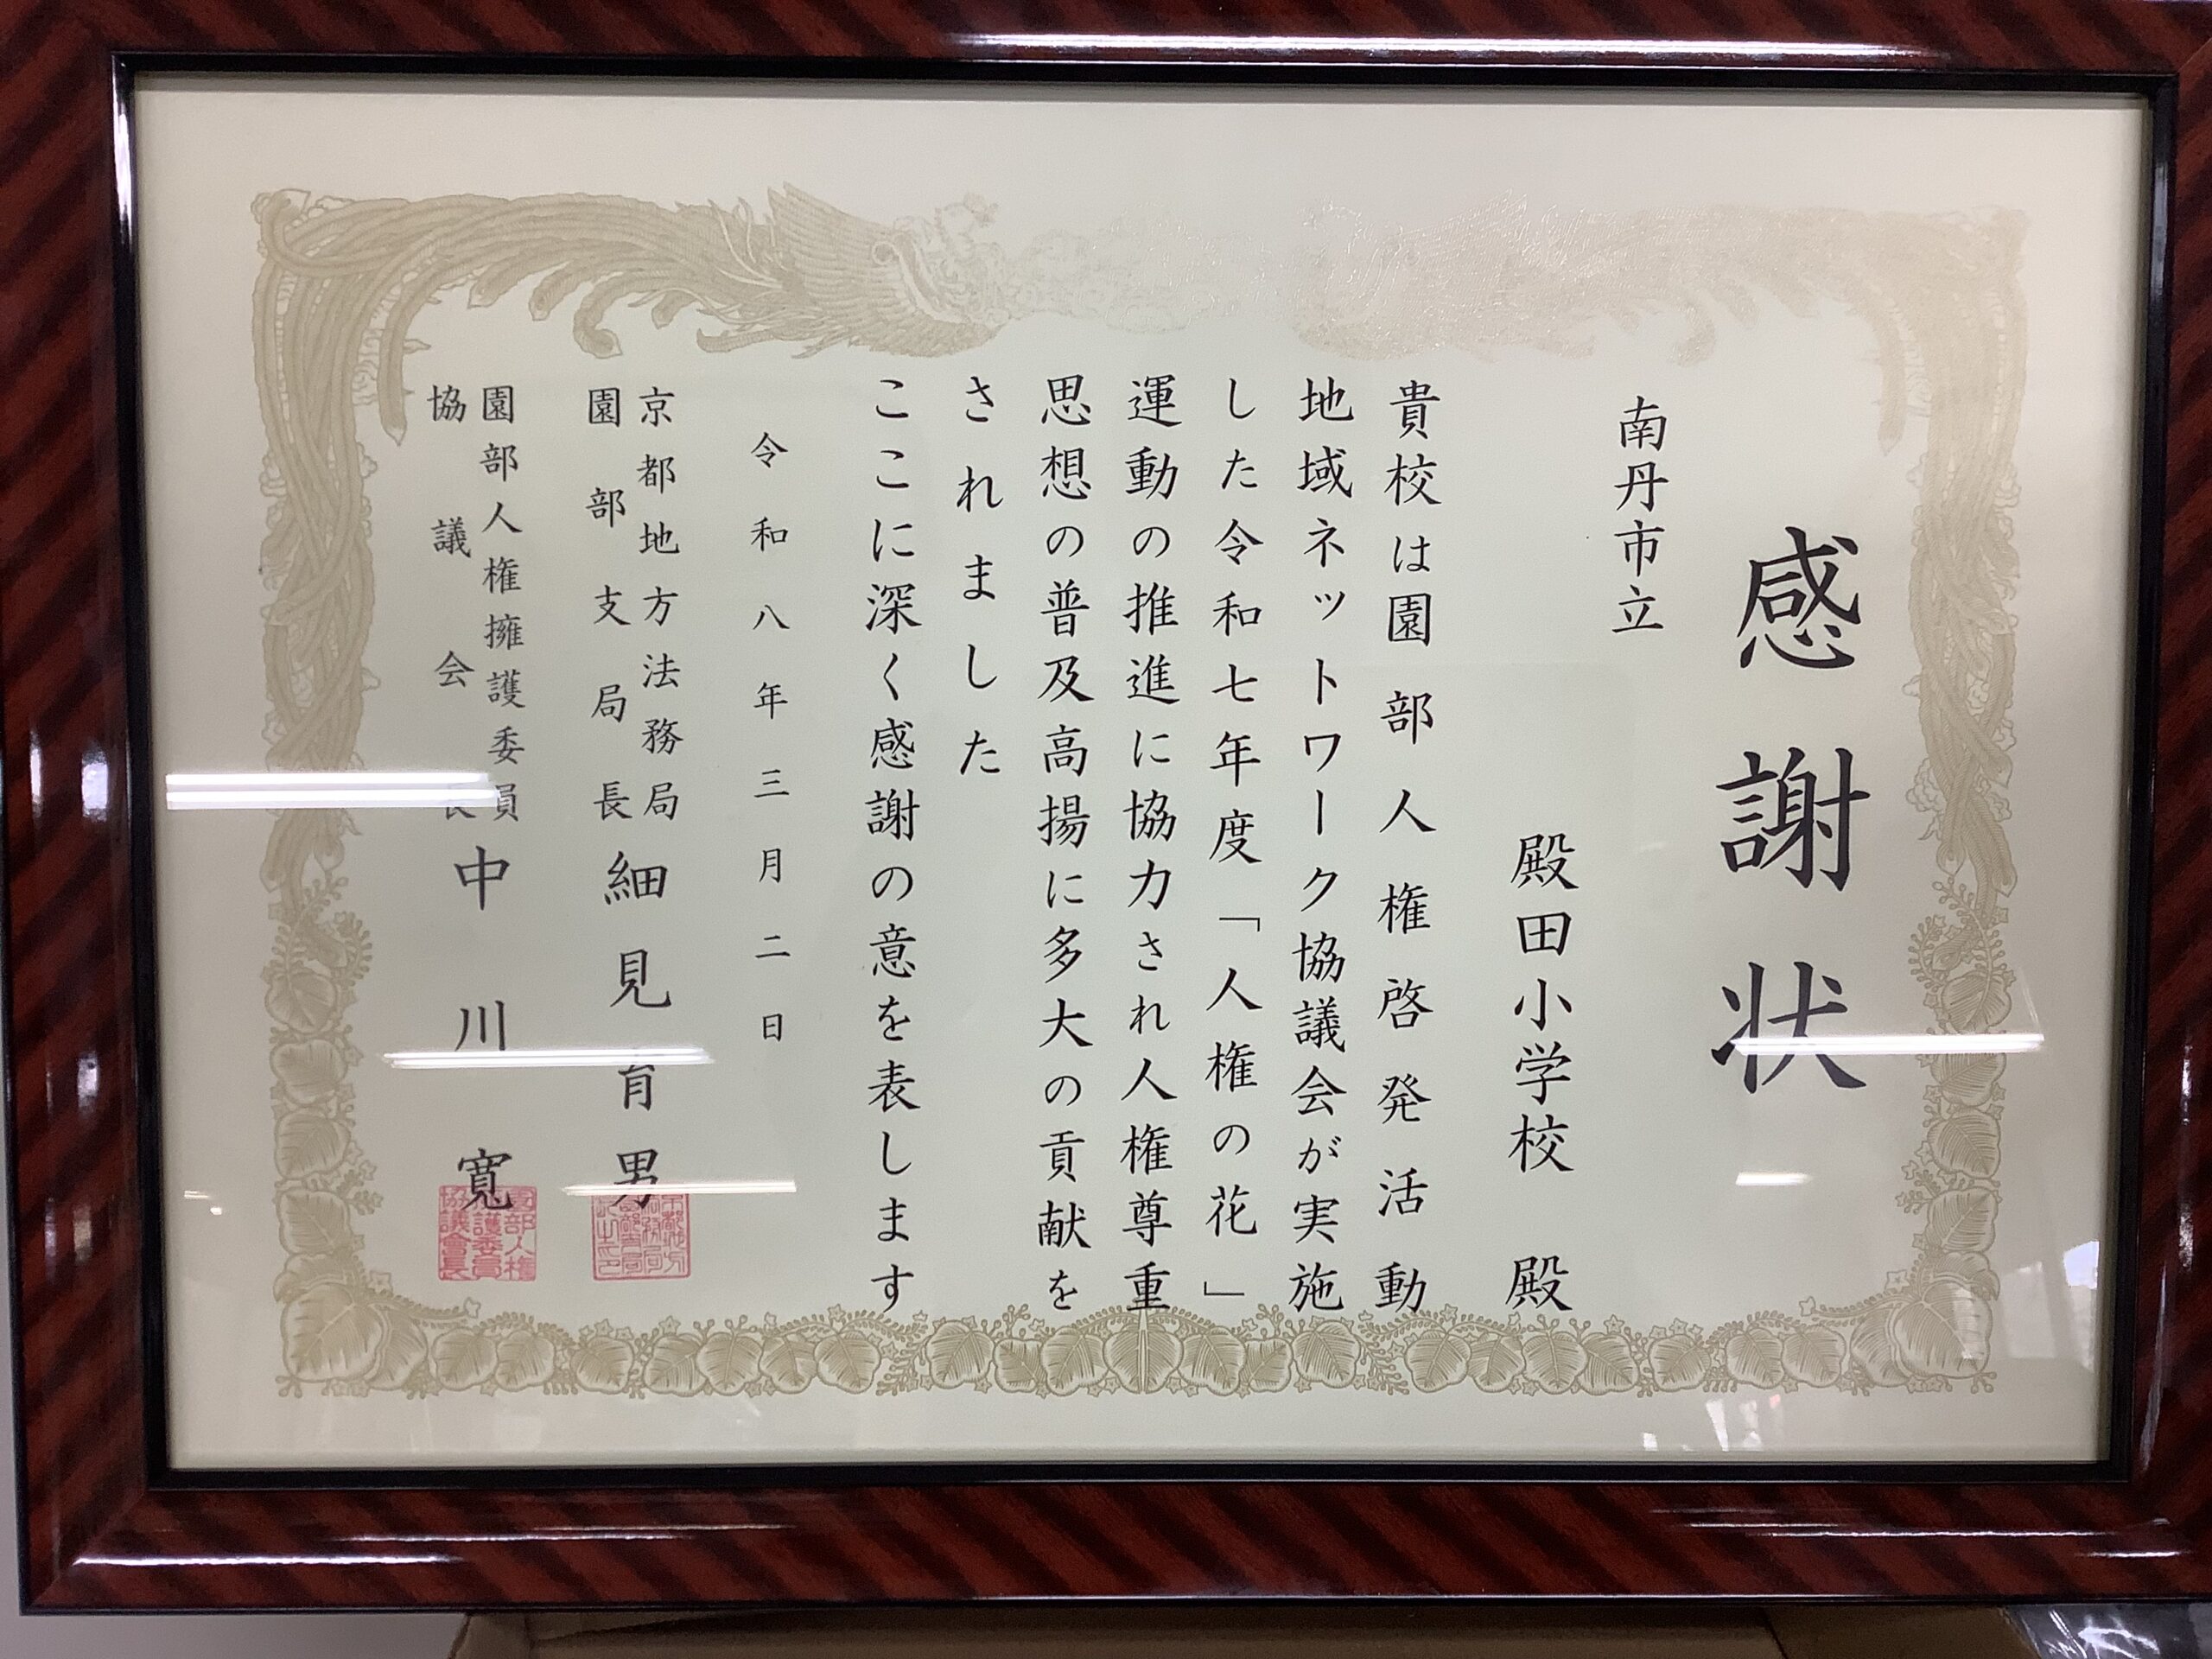 感謝状
南丹市立
殿田小学校　殿
貴校は園部人権啓発活動
地域ネットワーク協議会が実施
した令和七年度「人権の花」
運動の推進に協力され人権尊重
思想の普及高揚に多大の貢献を
されました
ここに深く感謝の意を表します
令和八年三月二日
京都地方法務局
園部支局長　細見育男
園部人権擁護委員
協議会長　中川寛